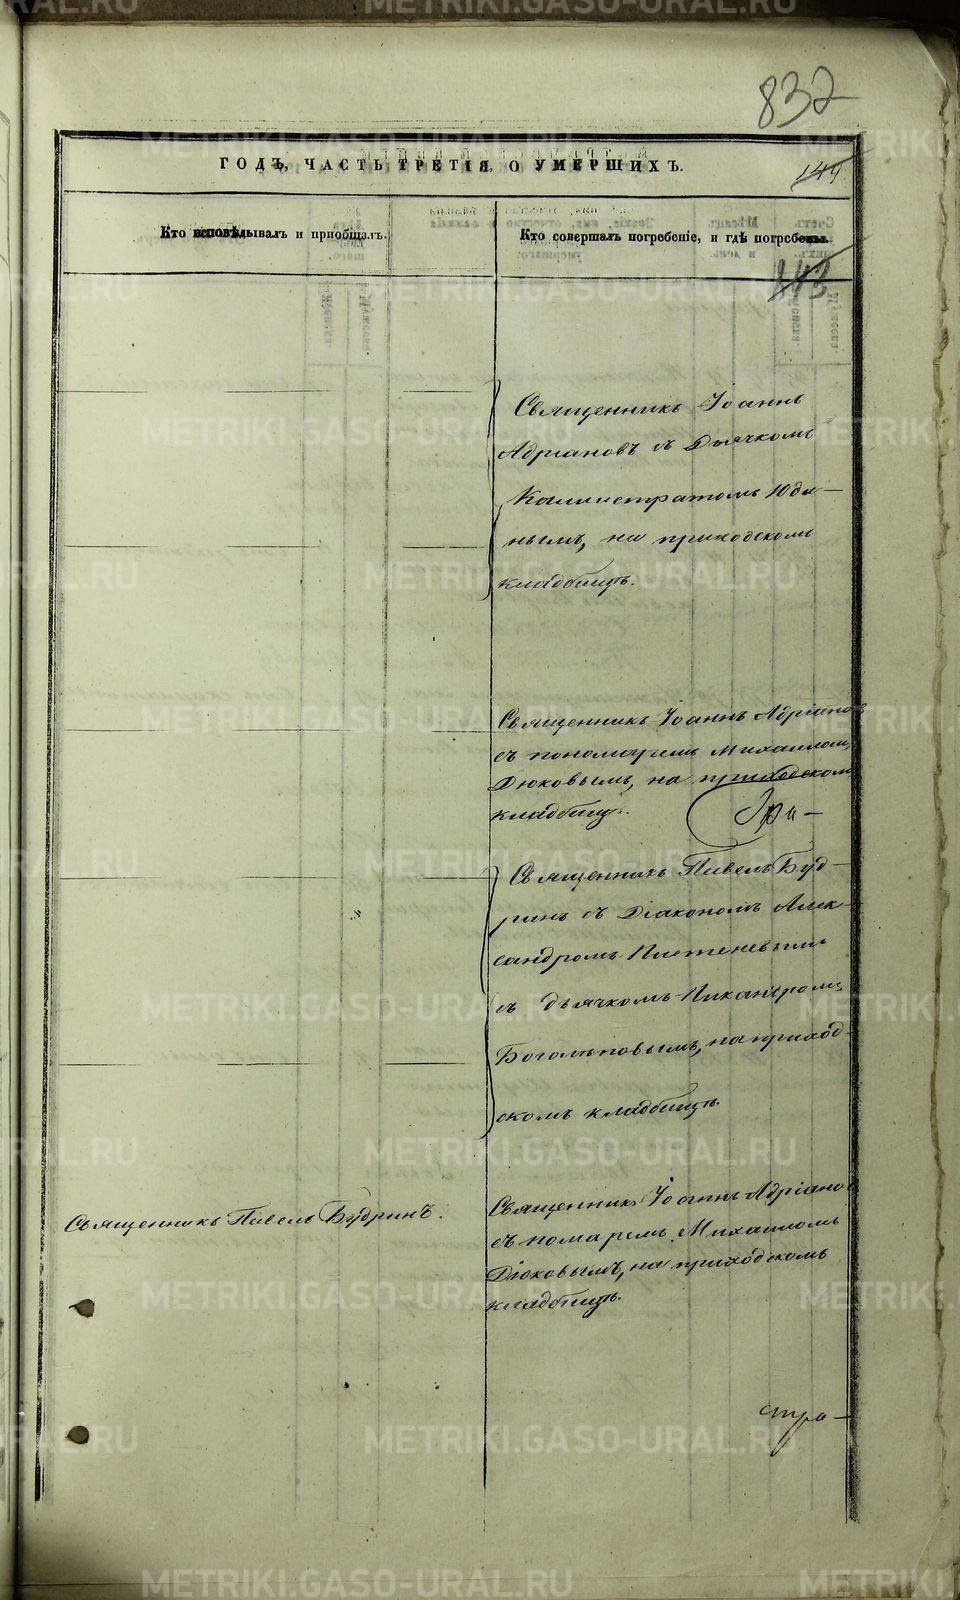 832
ГОДЪ, ЧАСТЬ ТРЕТІЯ, О УМЕРШИХЪ.
144
Кто исповѣдывалъ и пріобщалъ.
Кто совершалъ погребеніе, и гдѣ погребены.
143
Священникъ Іоаннъ
Адріановъ съ Дьячкомъ
Каллистратомъ Юди–
нымъ, на приходскомъ
кладбищѣ.
Священникъ Іоаннъ Адріановъ
съ пономаремъ Михаиломъ
Дюковымъ, на приходскомъ
кладбищѣ.
Священникъ Павелъ Буд–
ринъ съ Діакономъ Алек–
сандромъ Плотеневымъ
съ дьячкомъ Никаноромъ
Боголѣповымъ, на приход–
скомъ кладбищѣ.
Священникъ Павелъ Будринъ.
Священникъ Іоаннъ Адріанов
съ помаремъ Михаиломъ
Дюковымъ, на приходскомъ
кладбищѣ.
METRIKI.GASO-URAL.RU